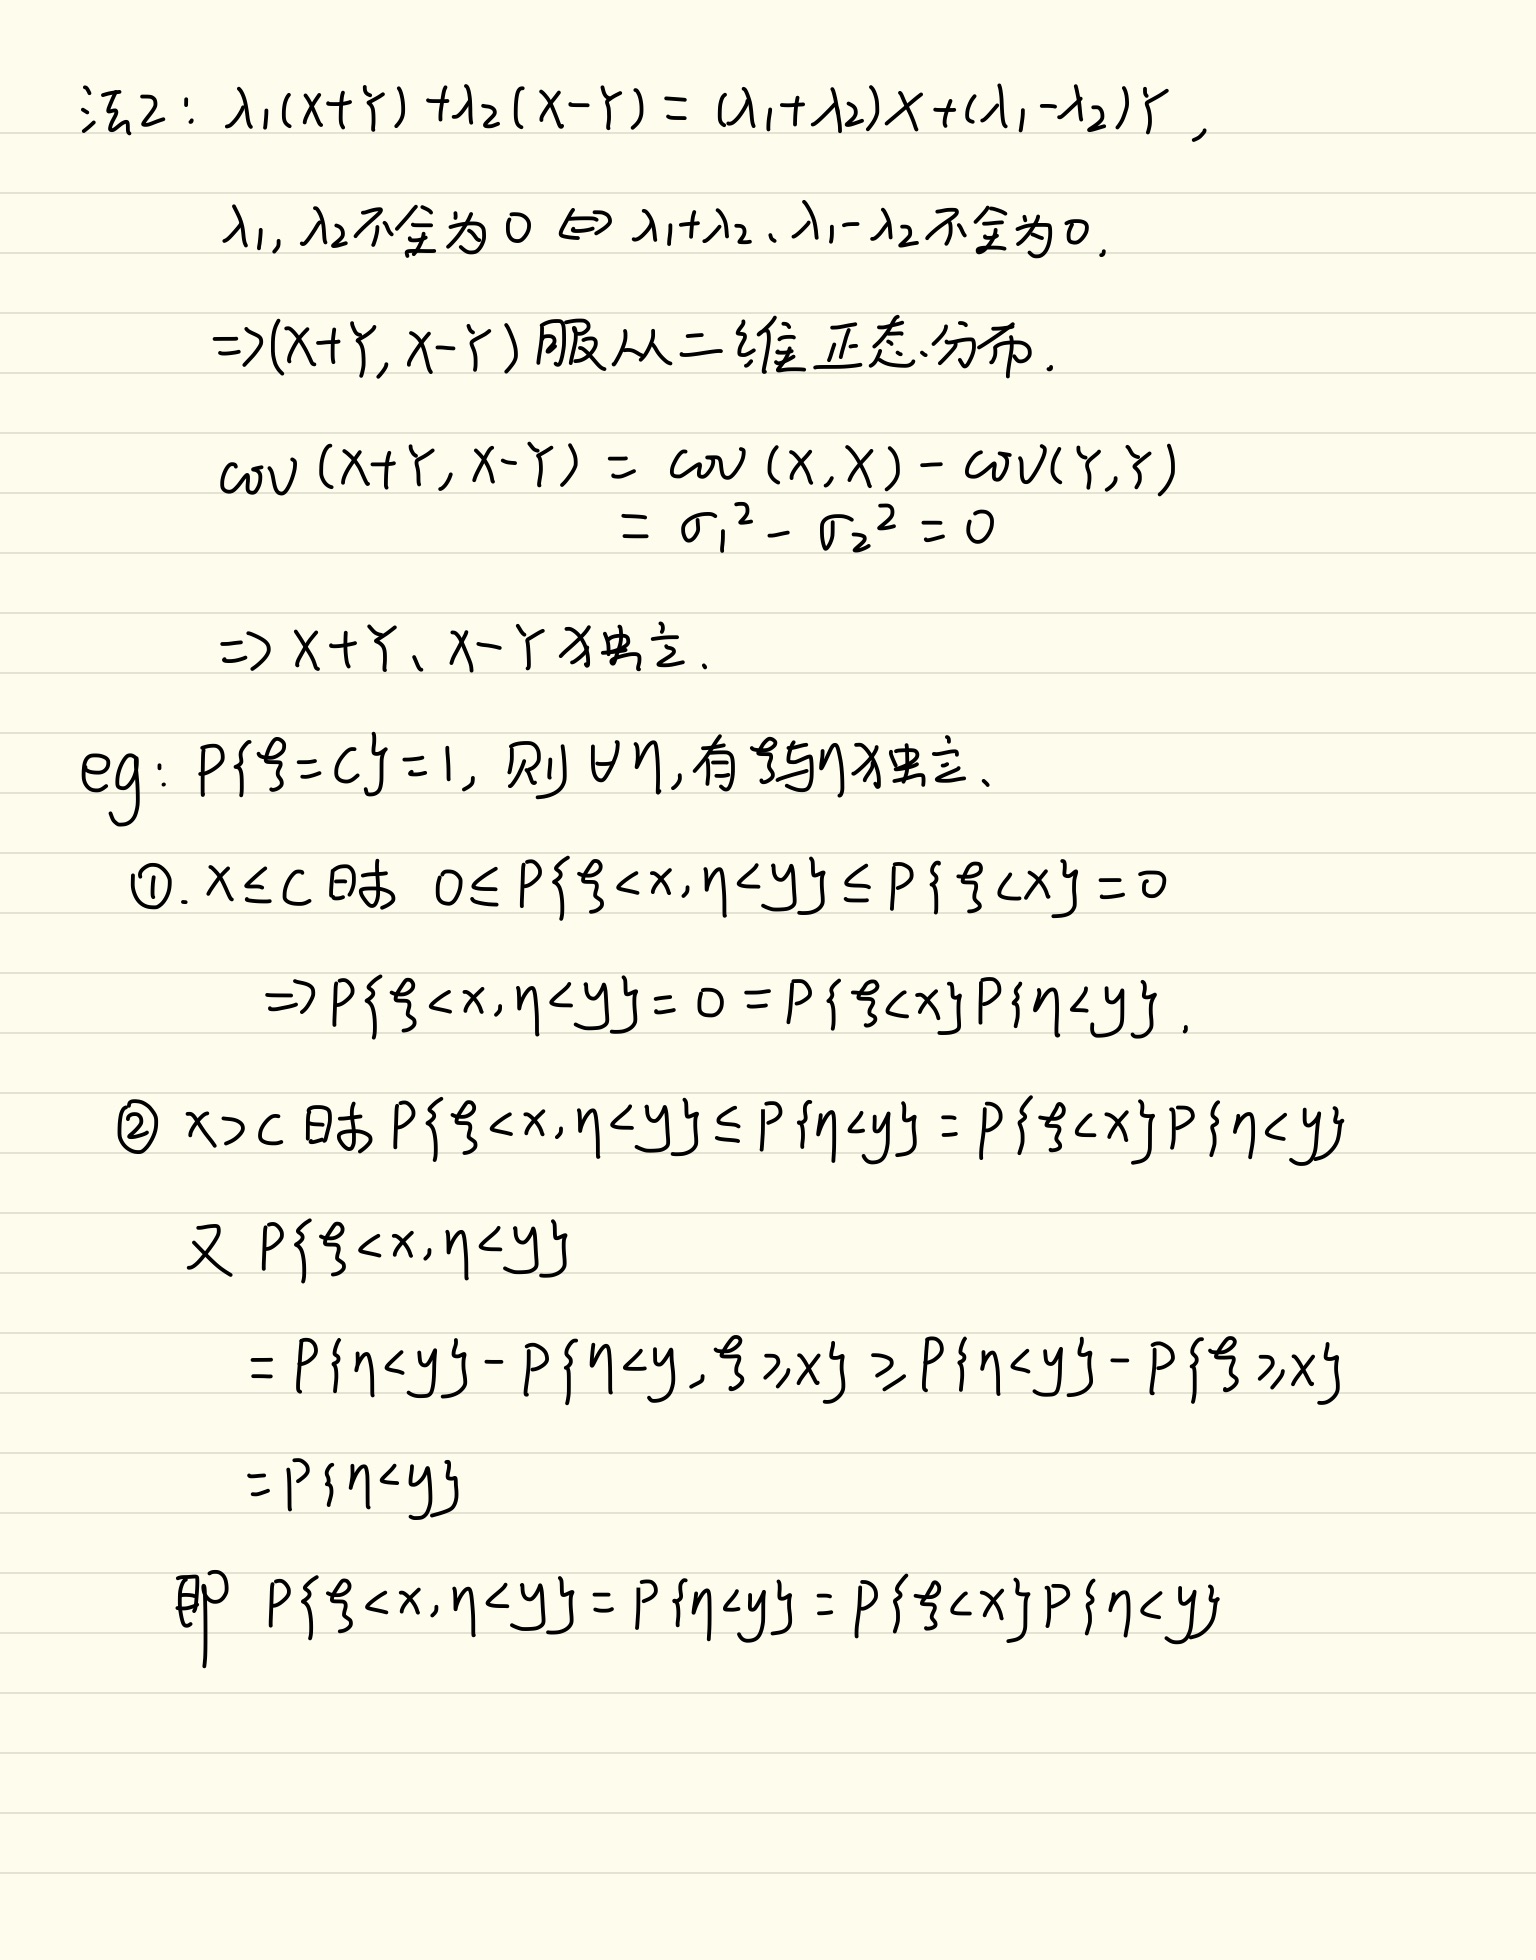 法2: λ₁(X+Y)+λ₂(X-Y) = (λ₁+λ₂)X+(λ₁-λ₂)Y,
λ₁, λ₂不全为0 ⇔ λ₁+λ₂、λ₁-λ₂不全为0.
⇒(X+Y, X-Y)服从二维正态分布.
cov(X+Y, X-Y) = cov(X,X) - cov(Y,Y)
= σ₁² - σ₂² = 0
⇒ X+Y、X-Y独立.
eg: P{ξ=C}=1, 则∀η,有ξ与η独立、
①. x≤C时 0≤P{ξ<x,η<y}≤P{ξ<x}=0
⇒P{ξ<x,η<y}=0=P{ξ<x}P{η<y}.
② x>C时 P{ξ<x,η<y}≤P{η<y}=P{ξ<x}P{η<y}
又 P{ξ<x,η<y}
=P{η<y}-P{η<y,ξ≥x}≥P{η<y}-P{ξ≥x}
=P{η<y}
即 P{ξ<x,η<y}=P{η<y}=P{ξ<x}P{η<y}